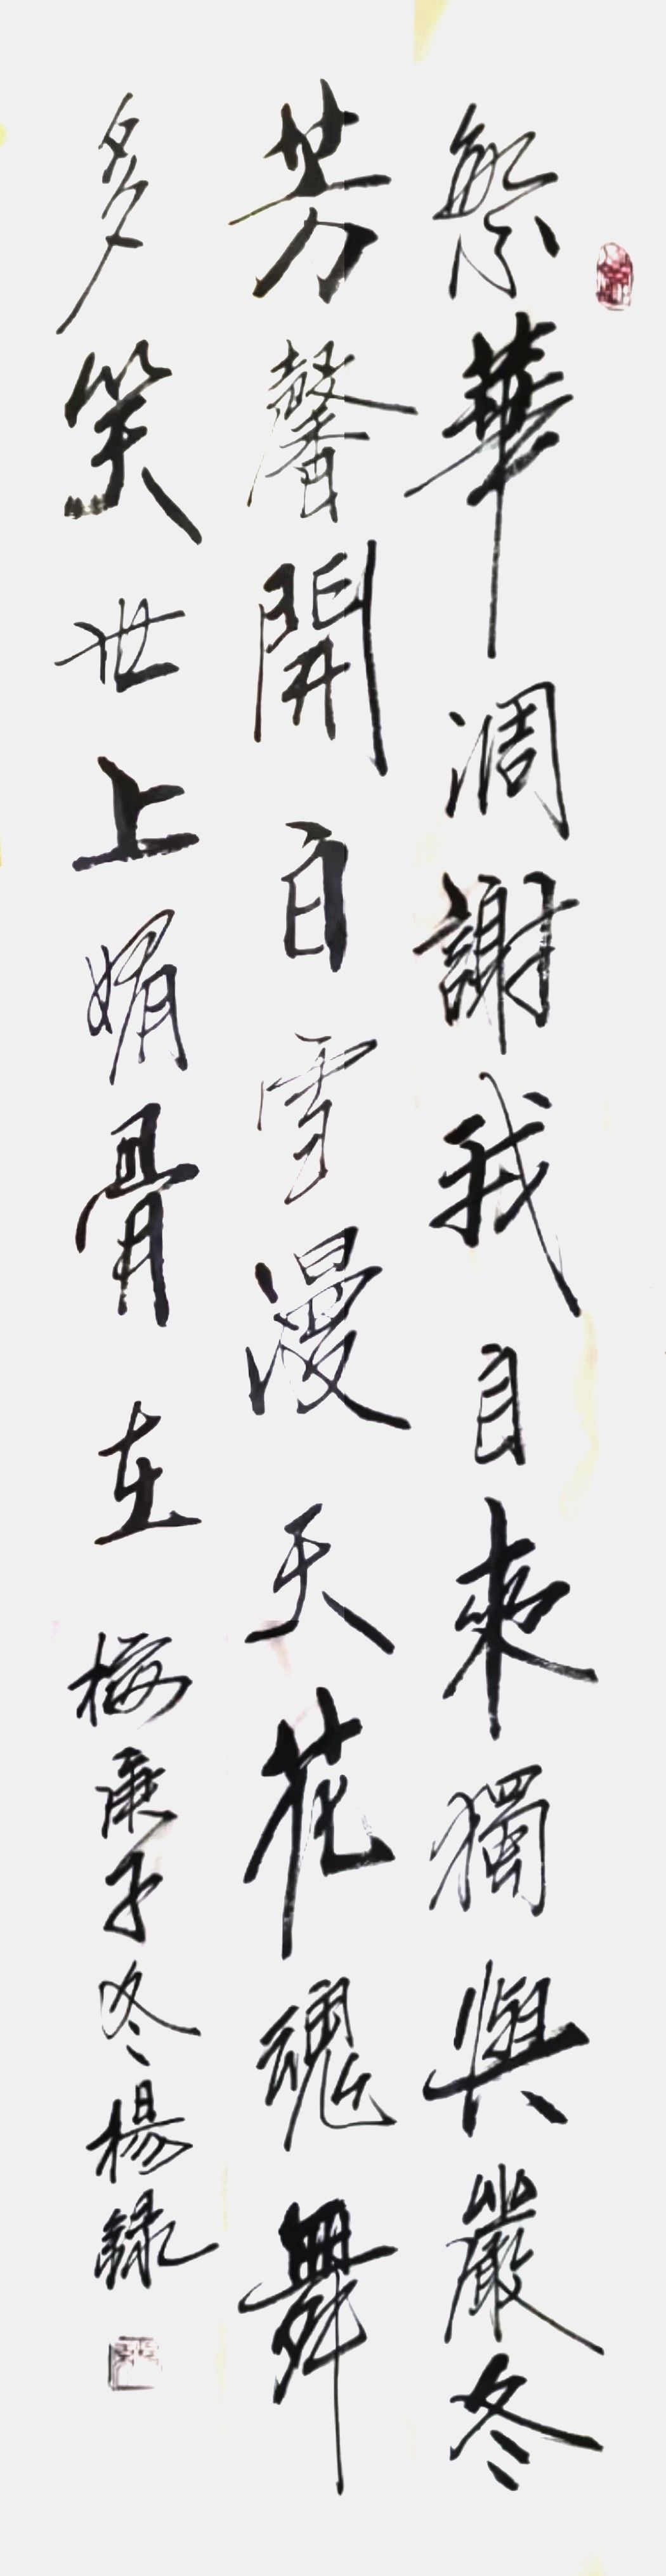 繁華凋謝我自來獨與嚴冬
芳馨開白雪漫天花魂舞
多笑世上媚骨在梅庚子冬楊錄